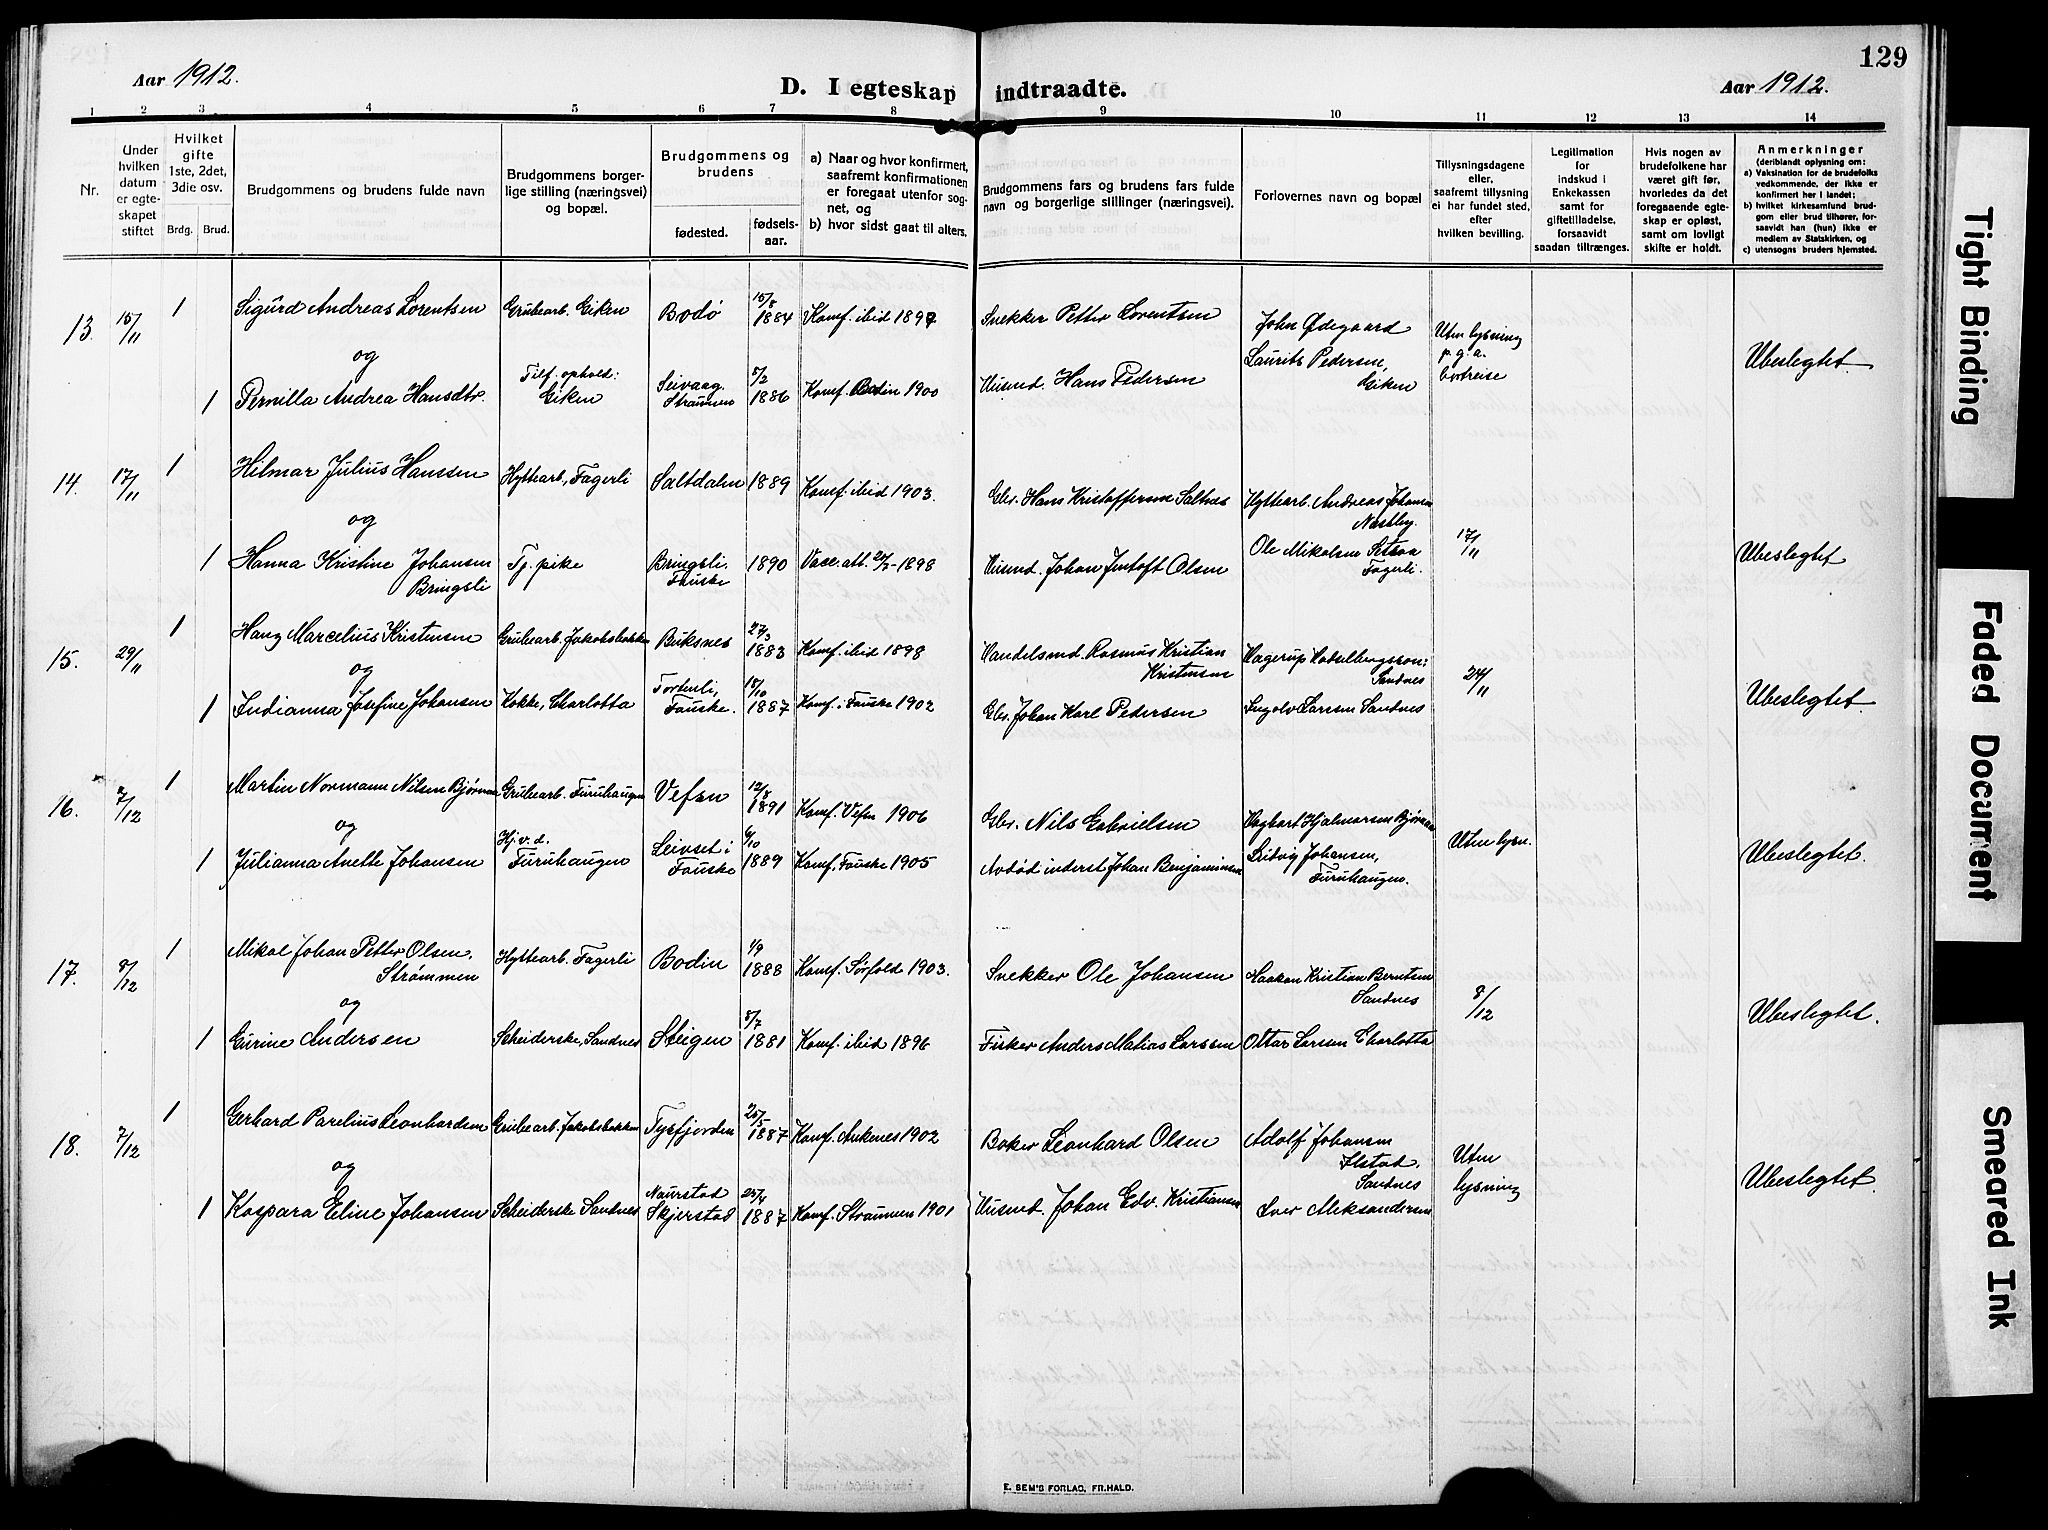 129
Aar 1912.
D. I egteskap indtraadte.
Aar 1912.
1 2 3 4 5 6 7 8 9 10 11 12 13 14
Nr.
Under hvilken datum er egteskapet stiftet
Hvilket gifte 1ste, 2det, 3die osv.
Brdg. Brud.
Brudgommens og brudens fulde navn
Brudgommens borgerlige stilling (næringsvei) og bopæl.
Brudgommens og brudens
fødested.
fødselsaar.
a) Naar og hvor konfirmert, saafremt konfirmationen er foregaat utenfor sognet, og
b) hvor sidst gaat til alters.
Brudgommens fars og brudens fars fulde navn og borgerlige stillinger (næringsvei).
Forlovernes navn og bopæl
Tillysningsdagene eller, saafremt tillysning ei har fundet sted, efter hvilken bevilling.
Legitimation for indskud i Enkekassen samt for giftetilladelse, forsaavidt saadan tiltrænges.
Hvis nogen av brudefolkene har været gift før, hvorledes da det foregaaende egteskap er opløst, samt om lovligt skifte er holdt.
Anmerkninger
(deriblandt oplysning om:
a) Vaksination for de brudefolks vedkommende, der ikke er konfirmert her i landet;
b) hvilket kirkesamfund brudgom eller brud tilhører, forsaavidt han (hun) ikke er medlem av Statskirken, og
c) utensogns bruders hjemsted.
13. 15/11 1 Sigurd Andreas Lorentsen Grubearb. Giken Bodø 15/8 1884 Konf. ibid 1897 Snekker Petter Lorentsen John Ødegaard Uten lysning p.g.a. bortreise
og
1 Pernilla Andrea Hansdtr. Tilf. ophold: Giken Seivaag. Straumen 5/2 1886 Konf. Bodin 1900 Husmd. Hans Pedersen Laurits Pedersen, Giken Ubeslegtet.
14. 17/11 1 Hilmar Julius Hanssen Hyttearb, Fagerli Saltdalen 1889 Konf. ibid 1903. Gbr. Hans Kristoffersen Saltnes Hyttearb. Andreas Johansen Næstby.
og
1 Hanna Kristine Johansen Bringsli Tj. pike Bringsli. Fauske 1890 Vacc. att. 1898 Husmd. Johan Jentoft Olsen Ole Mikalsen Setsaa Fagerli. 17/11 Ubeslegtet
15. 29/11 1 Hans Marcelius Kristensen Grubearb. Jakobsbakken Buksnes 27/3 1883 Konf. ibid 1898 Handelsmd. Rasmus Kristian Kristensen Hagerup Sandnes 24/11
og
1 Indianna Josefine Johansen Kokke, Charlotta Fauske. 15/10 1887 Konf. i Fauske 1902 Gbr. Johan Karl Pedersen Ingolv Larssen Sandnes Ubeslegtet
16. 7/12 1 Martin Normann Nilsen Bjørnaa Grubearb. Furuhaugen Vefsn 12/8 1891 Konf. Vefsn 1906 Gbr. Nils Gabrielsen Hagbart Hjalmarsen Bjørnaa
og
1 Julianna Anette Johansen Hj.v.d. Furuhaugen Leivset i Fauske 6/10 1889 Konf. Fauske 1905 Avdød inderst Johan Benjaminsen Ludvig Johansen, Furuhaugen. Uten lysn. Ubeslegtet.
17. 8/12 1 Mikal Johan Petter Olsen. Strømmen Hyttearb. Fagerli Bodin 1/9 1888 Konf. Sørfold 1903. Snekker Ole Johansen Haakon Kristian Berntsen Sandnes 8/12
og
1 Gurine Andersen Scheiderske, Sandnes Steigen 8/7 1881 Konf. ibid 1896 Fisker Anders Matias Larssen Ottar Larssen Charlotta Ubeslegtet.
18. 7/12 1 Gerhard Parelius Leonhardsen Grubearb. Jakobsbakken Tysfjorden 25/5 1887 Konf. Ankenes 1902 Baker Leonhard Olsen Adolf Johansen Sandnes Uten lysning
og
1 Kaspara Eline Johansen Scheiderske Sandnes Naurstad Skjerstad 25/4 1887 Konf. Straumen 1901 Husmd. Johan Edv. Kristiansen Iver Aleksandersen Ubeslegtet.
E. SEM'S FORLAG, FR.HALD.
Tight Binding
Faded Document
Smeared Ink